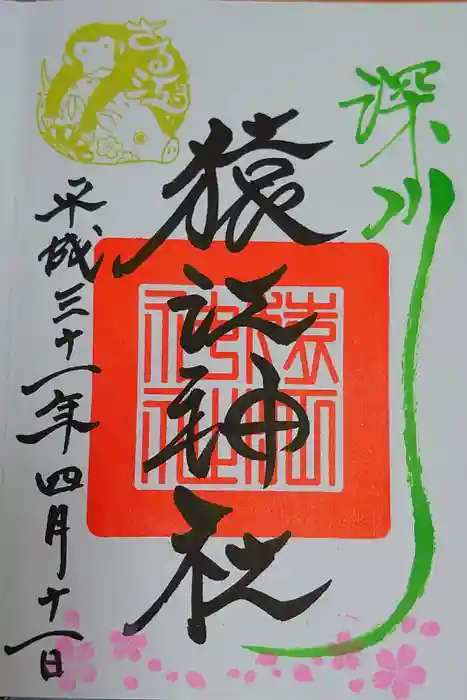 深川
猿江神社
平成三十一年四月十一日
さるえ